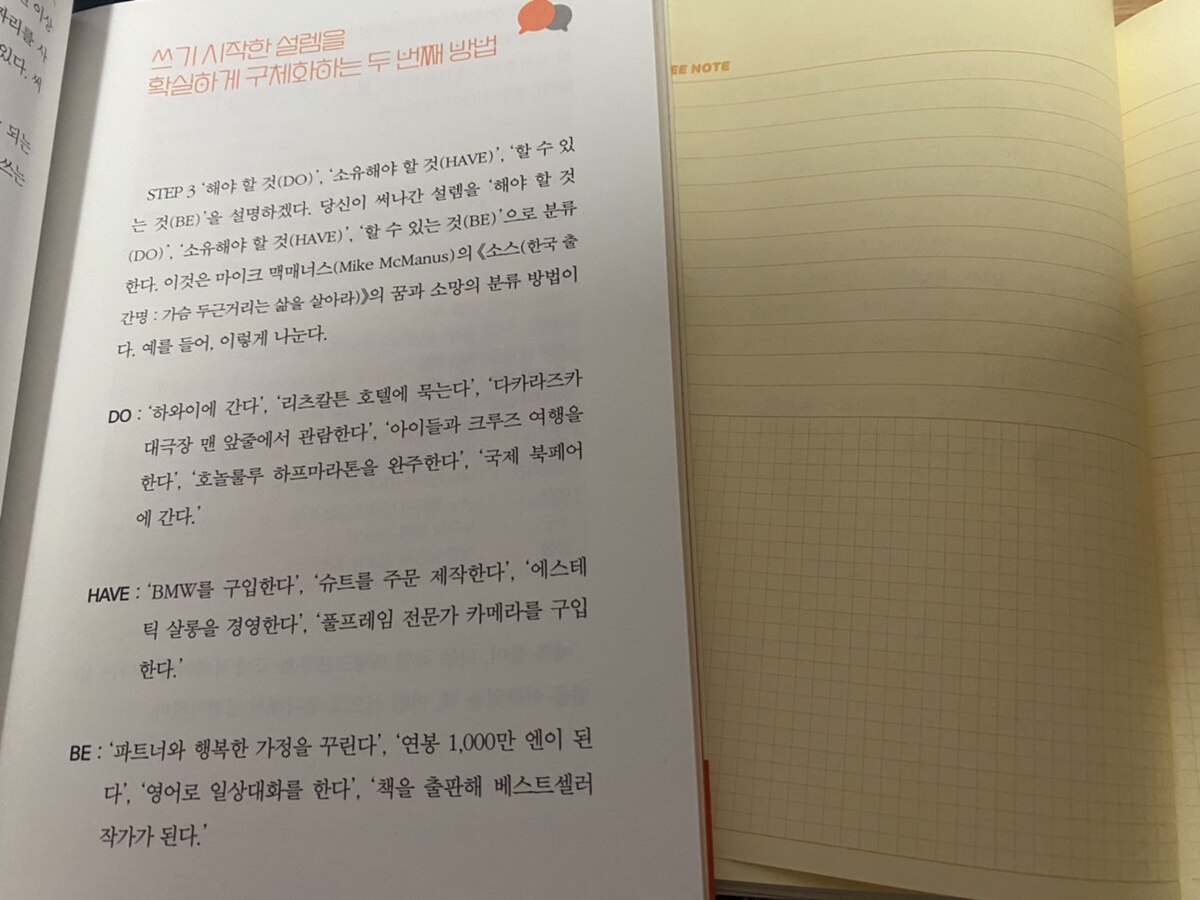 이상
자리를 사
있다. 써
되는
쓰는
쓰기 시작한 설렘을
확실하게 구체화하는 두 번째 방법
STEP 3 ‘해야 할 것(DO)’, ‘소유해야 할 것(HAVE)’, ‘할 수 있
는 것(BE)’을 설명하겠다. 당신이 써나간 설렘을 ‘해야 할 것
(DO)’, ‘소유해야 할 것(HAVE)’, ‘할 수 있는 것(BE)’으로 분류
한다. 이것은 마이크 맥매너스(Mike McManus)의 《소스(한국 출
간명 : 가슴 두근거리는 삶을 살아라)》의 꿈과 소망의 분류 방법이
다. 예를 들어, 이렇게 나눈다.
DO : ‘하와이에 간다’, ‘리츠칼튼 호텔에 묵는다’, ‘다카라즈카
대극장 맨 앞줄에서 관람한다’, ‘아이들과 크루즈 여행을
한다’, ‘호놀룰루 하프마라톤을 완주한다’, ‘국제 북페어
에 간다.’
HAVE : ‘BMW를 구입한다’, ‘슈트를 주문 제작한다’, ‘에스테
틱 살롱을 경영한다’, ‘풀프레임 전문가 카메라를 구입
한다.’
BE : ‘파트너와 행복한 가정을 꾸린다’, ‘연봉 1,000만 엔이 된
다’, ‘영어로 일상대화를 한다’, ‘책을 출판해 베스트셀러
작가가 된다.’
EE NOTE